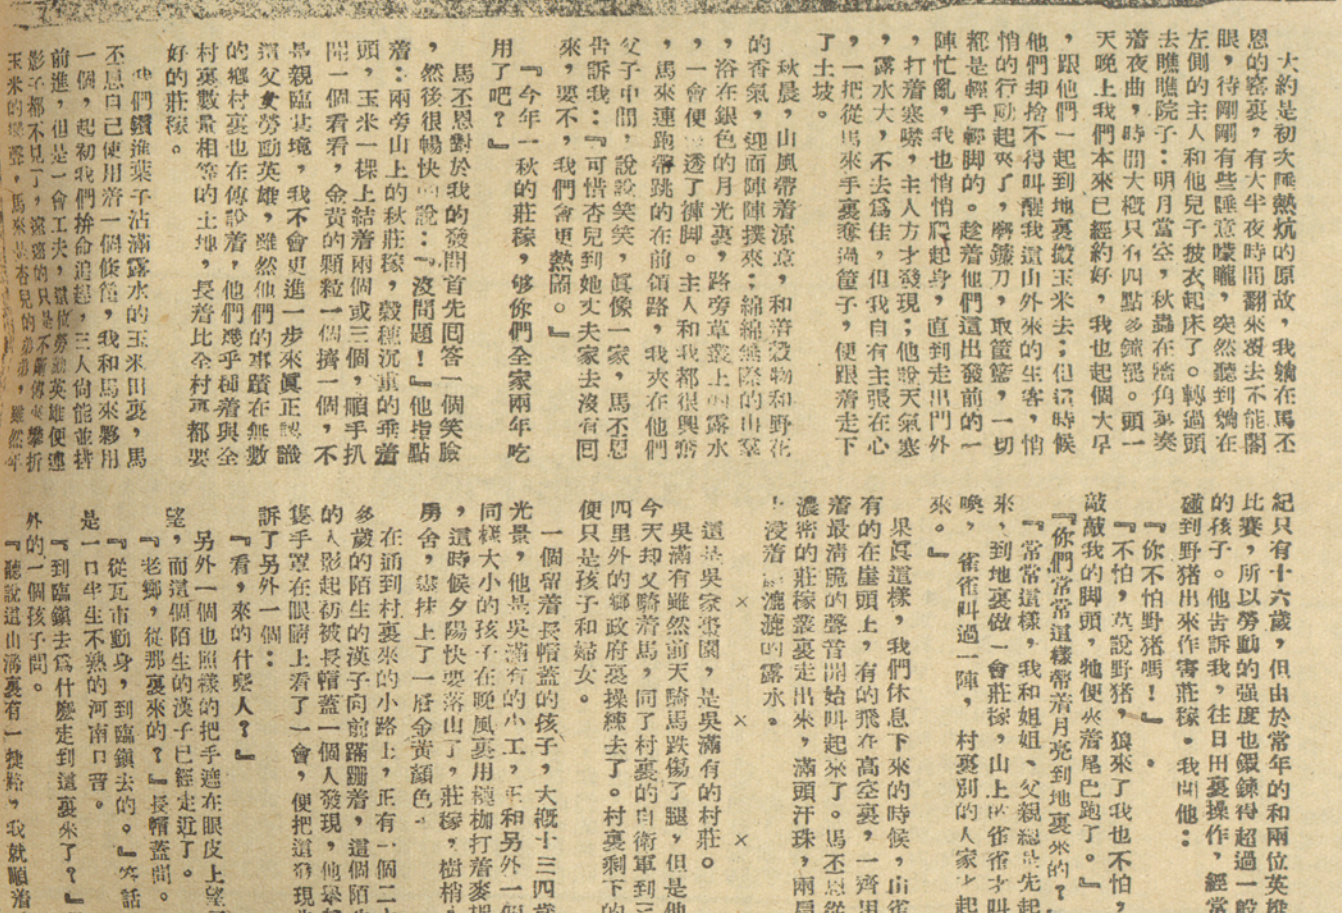 大約是初次睡熱炕的原故，我躺在馬丕
恩的窰裏，有大半夜時間翻來覆去不能閤
眼，待剛剛有些睡意矇矓，突然聽到躺在
左側的主人和他兒子披衣起床了。轉過頭
去瞧瞧院子：明月當空，秋蟲在牆角裏奏
着夜曲，時間大概只有四點多鐘罷。頭一
天晚上我們本來已經約好，我也起個大早
，跟他們一起到地裏搬玉米去；但這時候
他們却捨不得叫醒我這山外來的生客，悄
悄的行動起來了，磨鐮刀，取筐籃，一切
都是輕手輕脚的。趁着他們這出發前的一
陣忙亂，我也悄悄爬起身，直到走出門外
，打着寒噤，主人方才發現；他說天氣寒
，露水大，不去爲佳，但我自有主張在心
，一把從馬來手裏奪過筐子，便跟着走下
了土坡。
秋晨，山風帶着涼意，和着穀物和野花
的香氣，迎面陣陣撲來；綿綿無際的山羣
，浴在銀色的月光裏，路旁草叢上的露水
，一會便透了褲脚。主人和我都很興奮
，馬來連跑帶跳的在前領路，我夾在他們
父子中間，說說笑笑，眞像一家，馬丕恩
告訴我：『可惜杏兒到她丈夫家去沒有回
來，要不，我們會更熱鬧。』
『今年一秋的莊稼，够你們全家兩年吃
用了吧？』
馬丕恩對於我的發問首先回答一個笑臉
，然後很暢快的說：『沒問題！』他指點
着：兩旁山上的秋莊稼，穀穗沉重的垂着
頭，玉米一棵上結着兩個或三個，順手扒
開一個看看，金黃的顆粒一個擠一個，不
是親臨其境，我不會更進一步來眞正認識
這父女勞動英雄，雖然他們的事蹟在無數
的鄉村裏也在傳說着，他們幾乎種着與全
村裏數量相等的土地，長着比全村再都要
好的莊稼。
我們鑽進葉子沾滿露水的玉米田裏，馬
丕恩自己使用着一個條筐，我和馬來夥用
一個，起初我們拚命追趕，三人尙能並排
前進，但是一會工夫，這位勞動英雄便連
影子都不見了，遠遠的只是不斷傳來攀折
玉米的聲，馬來是杏兒的弟弟，雖然年
紀只有十六歲，但由於常年的和兩位英雄
比賽，所以勞動的强度也鍛鍊得超過一般
的孩子。他告訴我，往日田裏操作，經常
碰到野猪出來作害莊稼。我問他：
『你不怕野猪嗎！』
『不怕，莫說野猪，狼來了我也不怕，
敲敲我的脚頭，牠便夾着尾巴跑了。』
『你們常常這樣帶着月亮到地裏來的？
『常常這樣，我和姐姐、父親總是先起
來，到地裏做一會莊稼，山上的雀雀才叫
喚，雀雀叫過一陣，村裏別的人家才起
來。』
果眞這樣，我們休息下來的時候，山雀
有的在崖頭上，有的飛在高空裏，一齊用
着最淸脆的聲音開始叫起來了。馬丕恩從
濃密的莊稼叢裏走出來，滿頭汗珠，兩肩
上浸着漉漉的露水。
× × ×
這是吳家棗園，是吳滿有的村莊。
吳滿有雖然前天騎馬跌傷了腿，但是他
今天却又騎着馬，同了村裏的自衛軍到三
四里外的鄉政府裏操練去了。村裏剩下的
便只是孩子和婦女。
一個留着長帽蓋的孩子，大概十三四歲
光景，他是吳滿有的小工，正和另外一個
同樣大小的孩子在晚風裏用槤枷打着麥把
，這時候夕陽快要落山了，莊稼，樹梢，
房舍，塗抹上了一層金黃顏色。
在通到村裏來的小路上，正有一個二十
多歲的陌生的漢子向前蹣跚着，這個陌生
的人影起初被長帽蓋一個人發現，他舉起
隻手罩在眼睛上看了一會，便把這發現告
訴了另外一個：
『看，來的什麽人？』
另外一個也照樣的把手遮在眼皮上望
望，而這個陌生的漢子已經走近了。
『老鄉，從那裏來的？』長帽蓋問。
『從瓦市動身，到臨鎭去的。』答話
是一口半生不熟的河南口音。
『到臨鎭去爲什麽走到這裏來了？』
外的一個孩子問。
『聽說這山溝裏有一捷路，我就順着